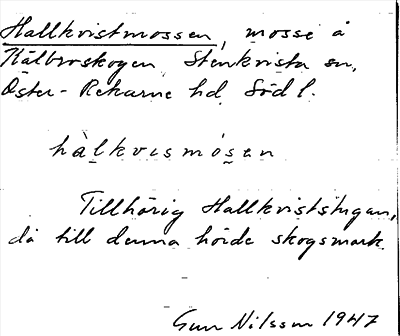 Hallkvistmossen, mosse å
Kälbroskogen, Stenkvista sn,
Öster-Rekarne hd, Södl.
hàlkvismósen
Tillhörig Hallkviststugan,
då till denna hörde skogsmark.
Gun Nilsson 1947